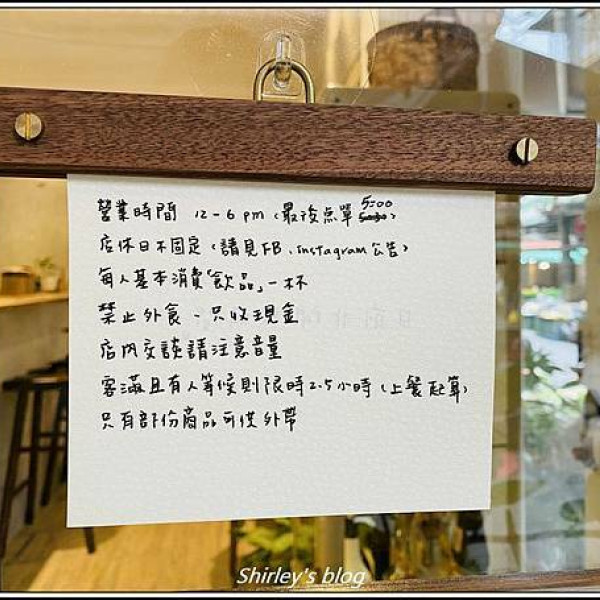 營業時間 12-6 pm (最後点單 5:00)
店休日不固定(請見FB、instagram公告)
每人基本消費「飲品」一杯
禁止外食、只收現金
店內交談請注意音量
客滿且有人等候則限時2.5小時(上餐起算)
只有部份商品可供外帶
Shirley's blog